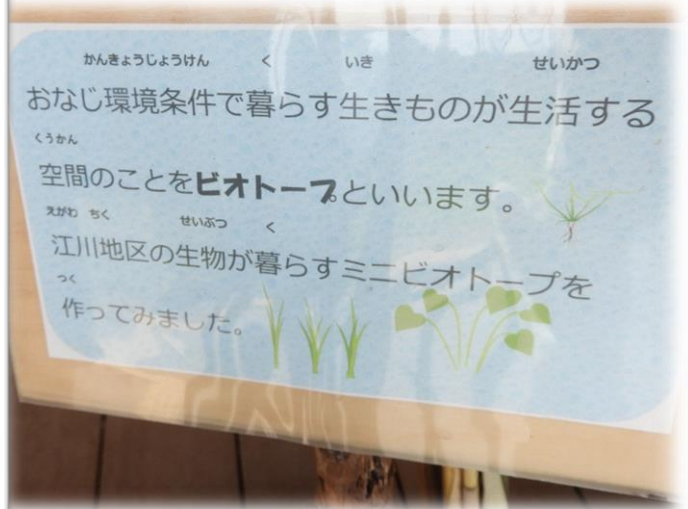 かんきょうじょうけん く いき せいかつ
おなじ環境条件で暮らす生きものが生活する
くうかん
空間のことをビオトープといいます。
えがわ ちく せいぶつ く
江川地区の生物が暮らすミニビオトープを
つく
作ってみました。